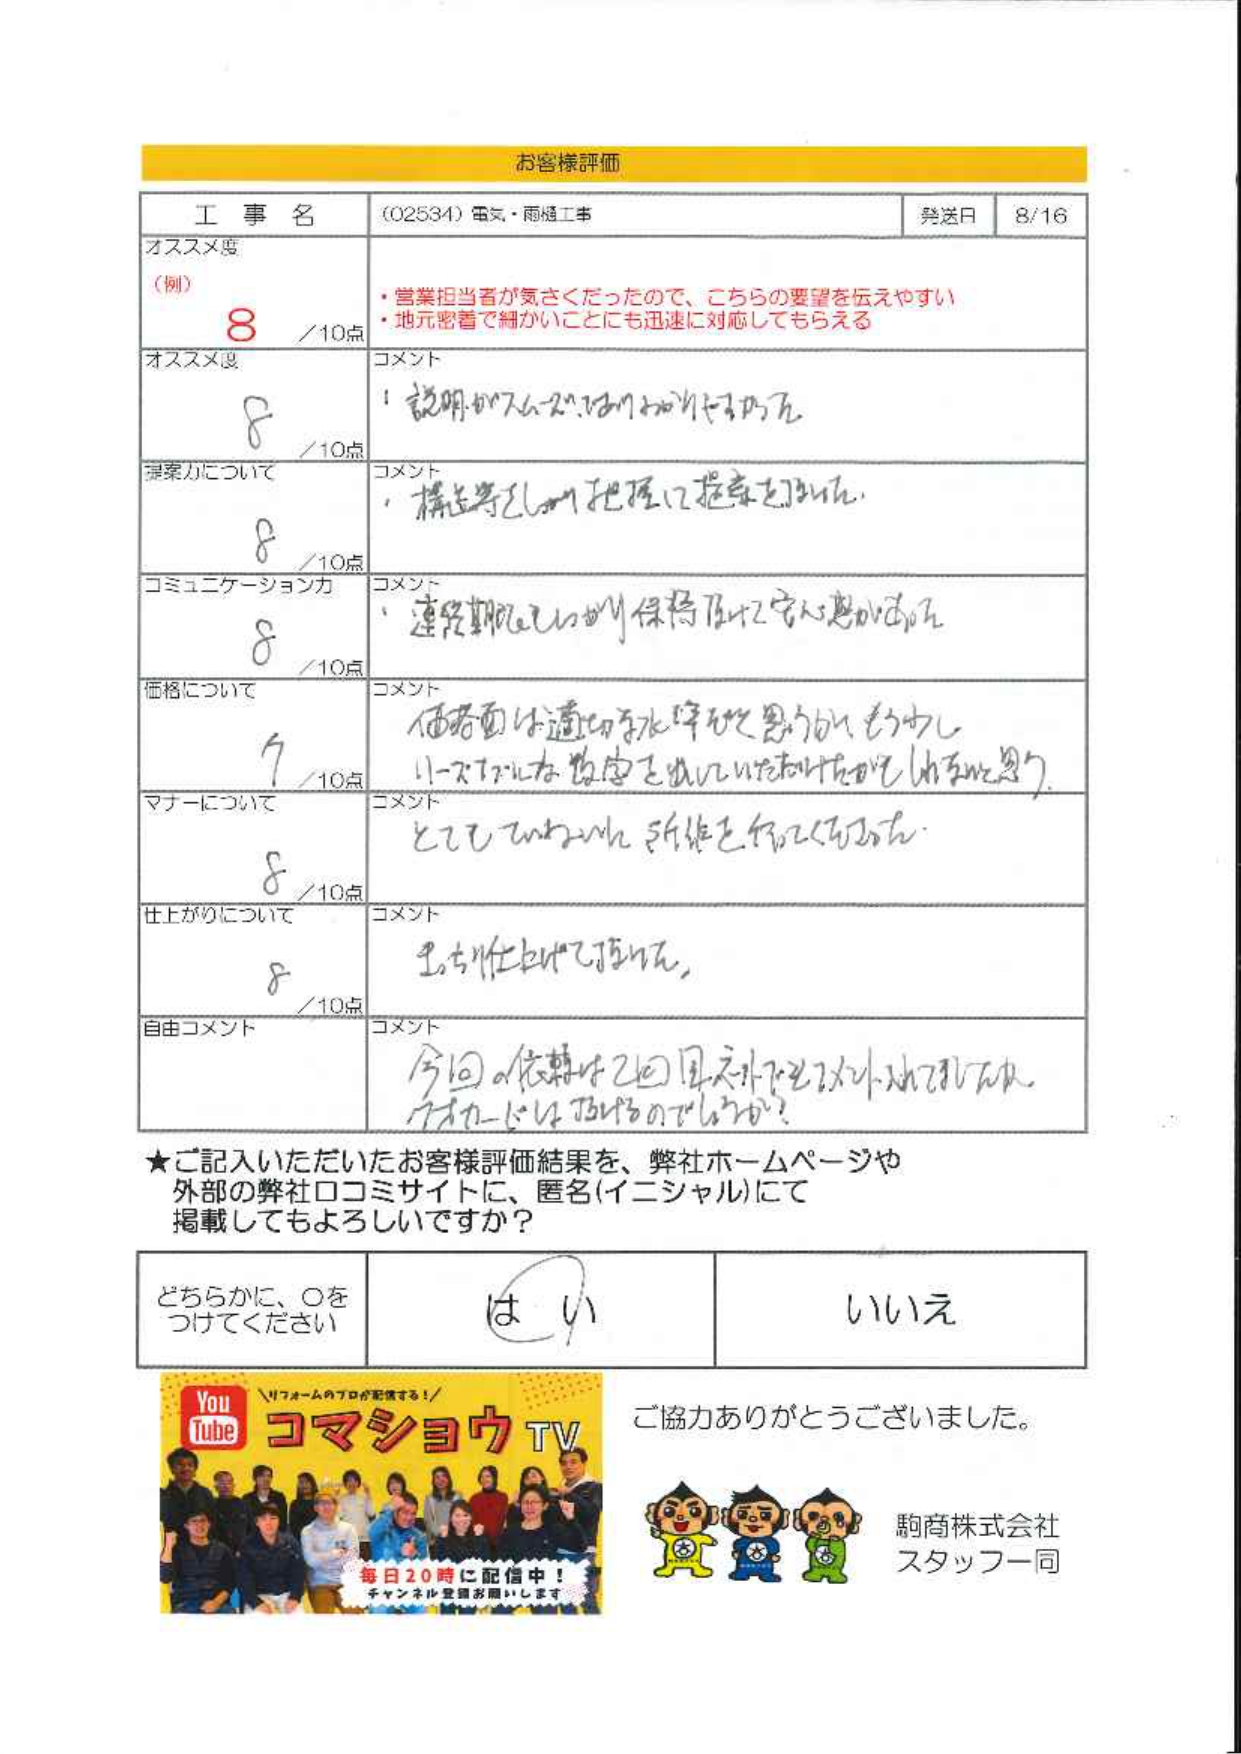 お客様評価
工 事 名 (02534) 電気・雨樋工事 発送日 8/16
オススメ度
(例)
8 /10点
・営業担当者が気さくだったので、こちらの要望を伝えやすい
・地元密着で細かいことにも迅速に対応してもらえる
オススメ度 コメント
8 /10点
説明がスムーズでありわかりやすかった
提案力について コメント
8 /10点
・構造等をしっかり把握して提案を頂いた.
コミュニケーション力 コメント
8 /10点
・連絡期限をしっかり保持頂けて安心感があった
価格について コメント
7 /10点
価格面は適切な水準だと思うが、もう少し
リーズナブルな数字を出していただけたかもしれないと思う.
マナーについて コメント
8 /10点
とてもていねいに所作を行ってくださった.
仕上がりについて コメント
8 /10点
きっちり仕上げて頂いた。
自由コメント コメント
今回の依頼は2回目 コメント されてましたが、
クオカードは頂けるのでしょうか?
★ご記入いただいたお客様評価結果を、弊社ホームページや
外部の弊社口コミサイトに、匿名(イニシャル)にて
掲載してもよろしいですか？
どちらかに、○を
つけてください
は い
いいえ
You
Tube
\リフォームのプロが配信する！/
コマショウTV
毎日20時に配信中！
チャンネル登録お願いします
ご協力ありがとうございました。
駒商株式会社
スタッフ一同